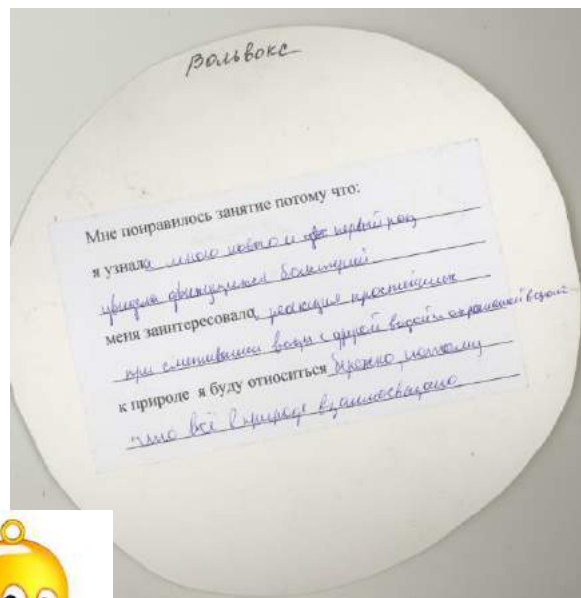 Вольвокс
Мне понравилось занятие потому что:
я узнала много нового и первый раз
увидела бактерий
меня заинтересовала реакция простейших
при смешивании воды с другой водой и окрашенной водой
к природе я буду относиться бережно, потому
что всё в природе взаимосвязано